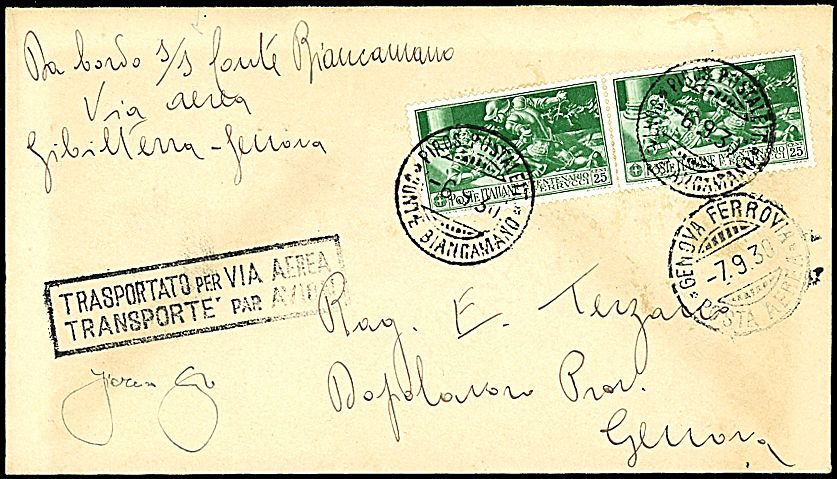 Da bordo s/s Conte Biancamano
Via aerea
Gibilterra - Genova
POSTE ITALIANE
CENTENARIO
FERRUCCI
25
POSTE ITALIANE
CENTENARIO
FERRUCCI
25
PIROS. POSTALE
6.9.30
CONTE BIANCAMANO
PIROS. POSTALE
6.9.30
CONTE BIANCAMANO
GENOVA FERROVIA
-7.9.30
POSTA AEREA
TRASPORTATO PER VIA AEREA
TRANSPORTE' PAR AVION
Rag. E. Terza
Dopolavoro Prov.
Genova